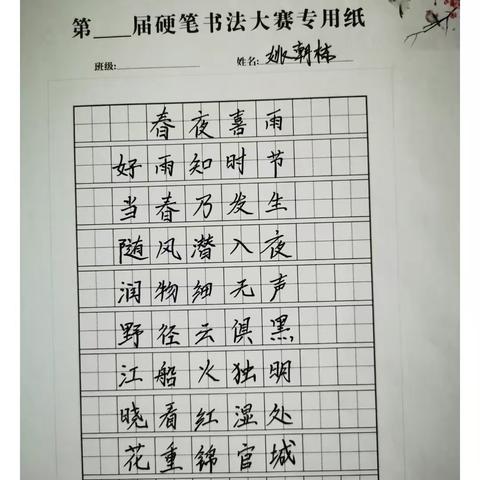 第___届硬笔书法大赛专用纸
班级: 姓名: 姚朝栋
春夜喜雨
好雨知时节
当春乃发生
随风潜入夜
润物细无声
野径云俱黑
江船火独明
晓看红湿处
花重锦官城